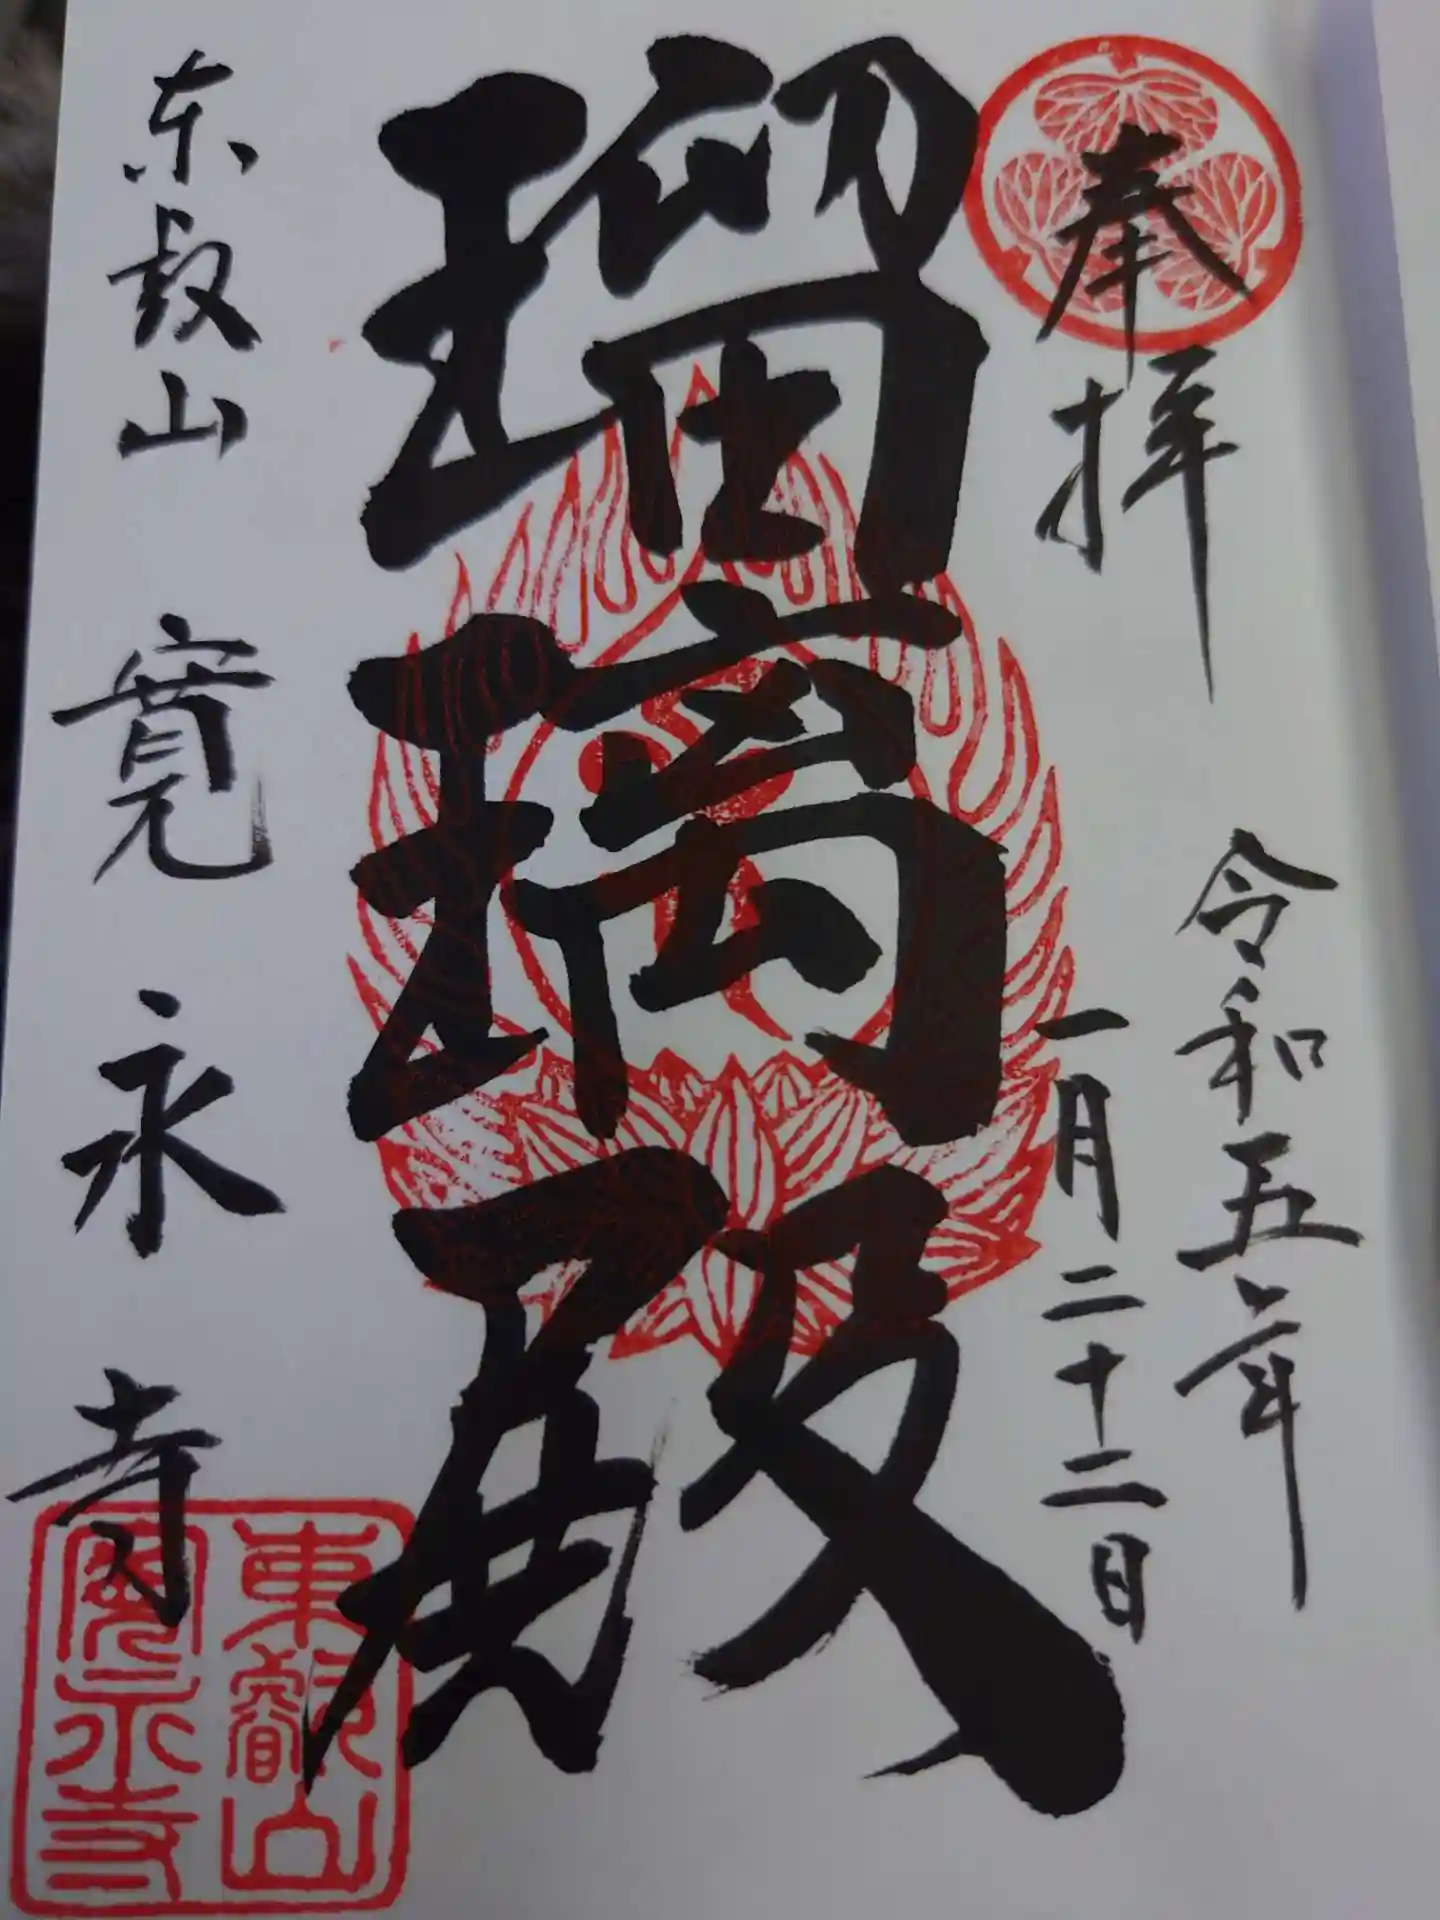 奉拝
令和五年
一月二十二日
瑠璃殿
东叡山 寛永寺
東叡山
寛永寺